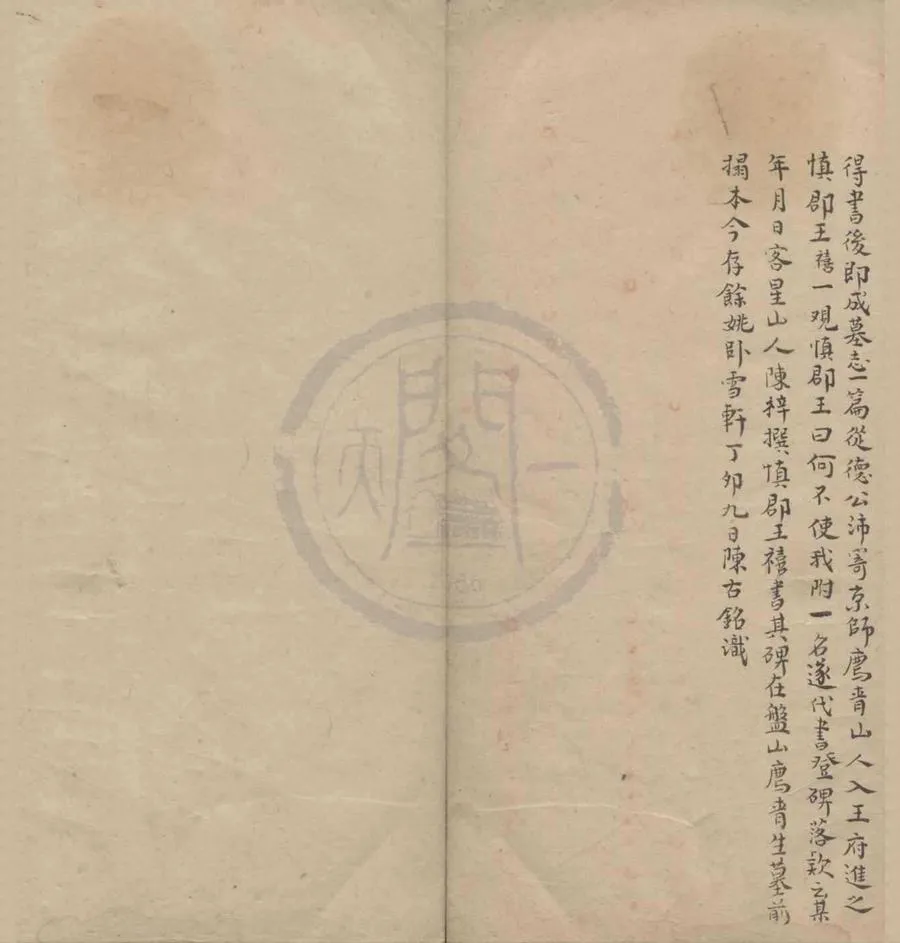 得書後即成墓志一篇從德公沛寄京師廌青山人入王府進之
慎郡王禧一觀慎郡王曰何不使我附一名遂代書登碑落款云某
年月日客星山人陳梓撰慎郡王禧書其碑在盤山廌青生墓前
搨本今存餘姚卧雪軒丁卯九日陳古銘識